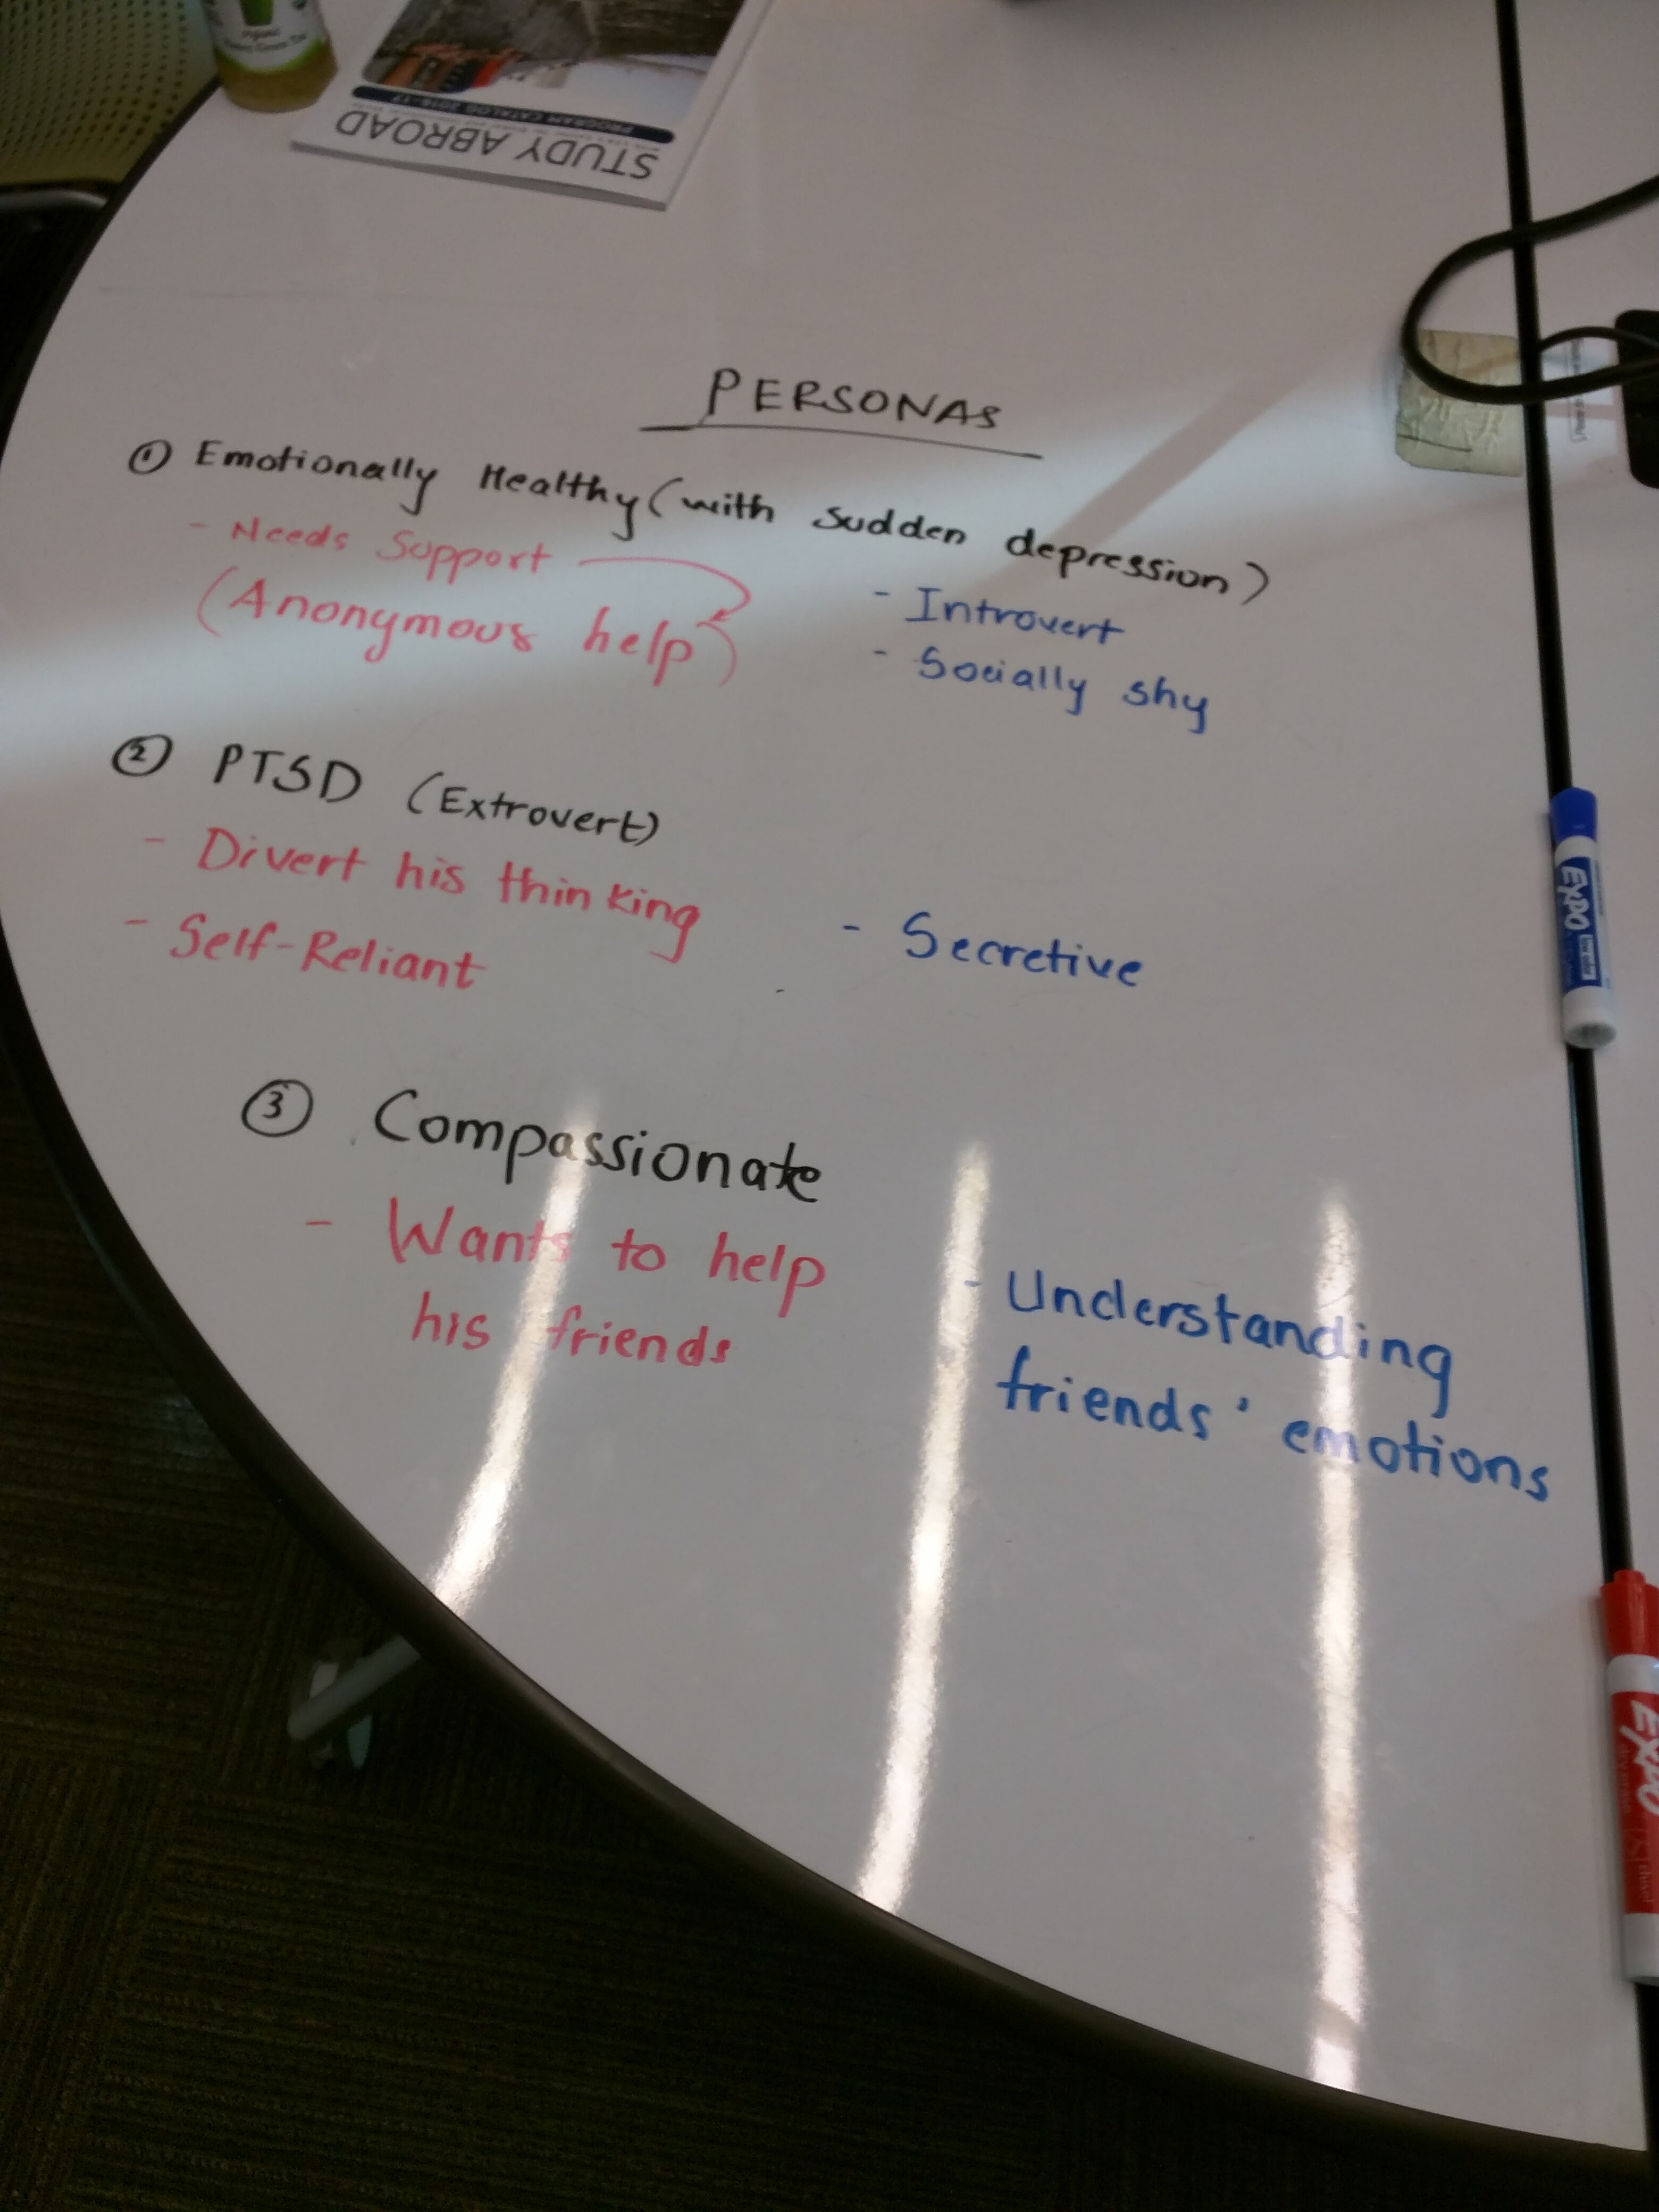 Organic
STUDY ABROAD
PROGRAM CATALOG 2016-17
PERSONAS
① Emotionally Healthy (with sudden depression)
- Needs Support
(Anonymous help)
- Introvert
- Socially shy
② PTSD (Extrovert)
- Divert his thinking
- Self-Reliant
- Secretive
③ Compassionate
- Wants to help
his friends
- Understanding
friends' emotions
EXPO
low odor
EXPO